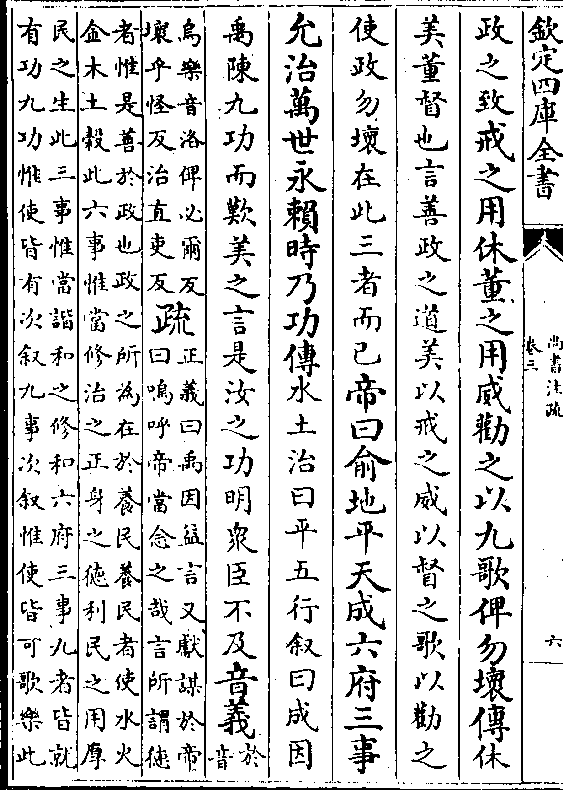 欽定四庫全書
尚書注疏
卷三
六
政之致戒之用休董之用威勸之以九歌俾勿壞傳休
美董督也言善政之道美以戒之威以督之歌以勸之
使政勿壞在此三者而已帝曰俞地平天成六府三事
允治萬世永賴時乃功傳水土治曰平五行叙曰成因
禹陳九功而歎美之言是汝之功明衆臣不及音義於音
烏樂音洛俾必爾反
壞乎怪反治直吏反疏正義曰禹因益言又獻謀於帝
曰嗚呼帝當念之哉言所謂徳
者惟是善於政也政之所為在於養民養民者使水火
金木土穀此六事惟當修治之正身之徳利民之用厚
民之生此三事惟當諧和之修和六府三事九者皆就
有功九功惟使皆有次叙九事次叙惟使皆可歌樂此